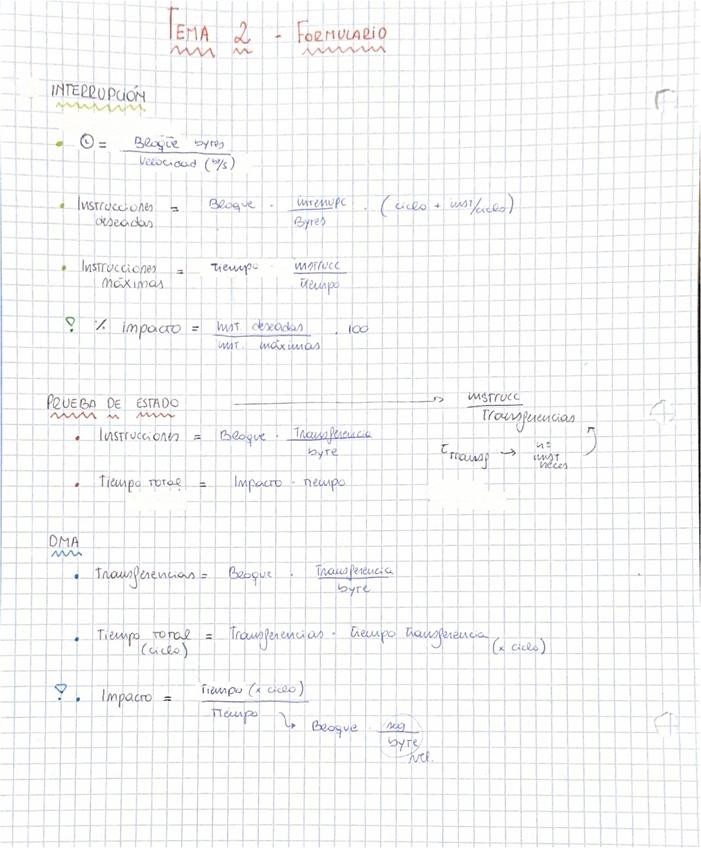 TEMA 2 - FORMULARIO
INTERRUPCIÓN
• t = Bloque bytes / Velocidad (b/s)
• Instrucciones deseadas = Bloque · interrupc / Bytes · (ciclo + inst/ciclo)
• Instrucciones máximas = tiempo · instrucc / tiempo
% impacto = inst. deseadas / inst. máximas · 100
PRUEBA DE ESTADO → instrucc / Transferencias
• Instrucciones = Bloque · Transferencia / byte
t transf → nº inst neces
• Tiempo total = Impacto · tiempo
DMA
• Transferencias = Bloque · Transferencia / byte
• Tiempo total (ciclo) = Transferencias · tiempo transferencia (x ciclo)
• Impacto = Tiempo (x ciclo) / Tiempo
↳ Bloque · seg / byte
vel.